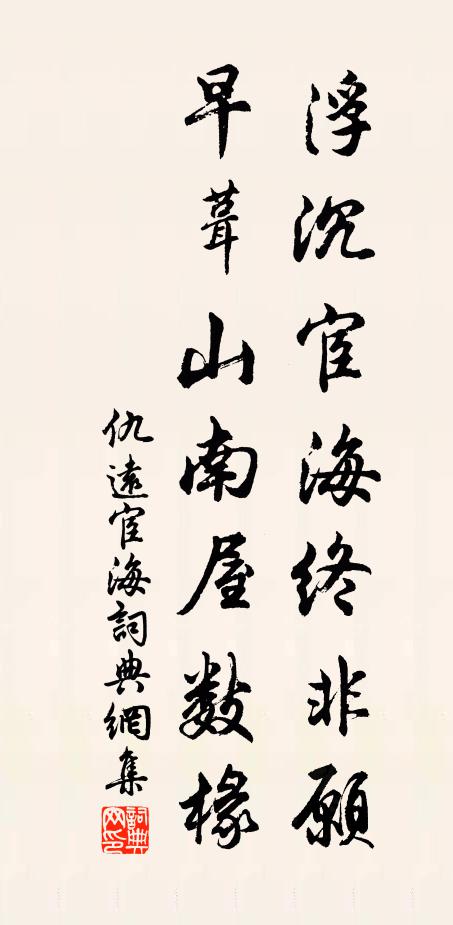 浮沉宦海終非願
早葺山南屋數椽
仇遠宦海詞典網集
詞典網印